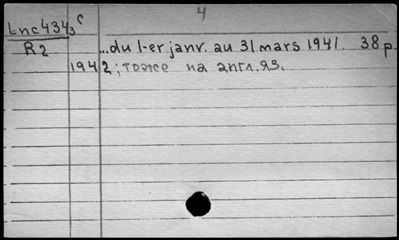 4
Lnc434/3 c
R2
...du 1-er janv. au 31 mars 1941. 38 p.
1942; тоже на англ. яз.